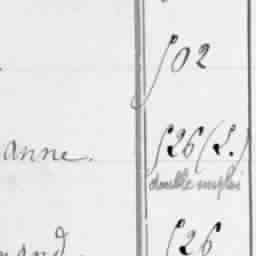 502
anne. 526 (2.)
double emploi
mand. 526